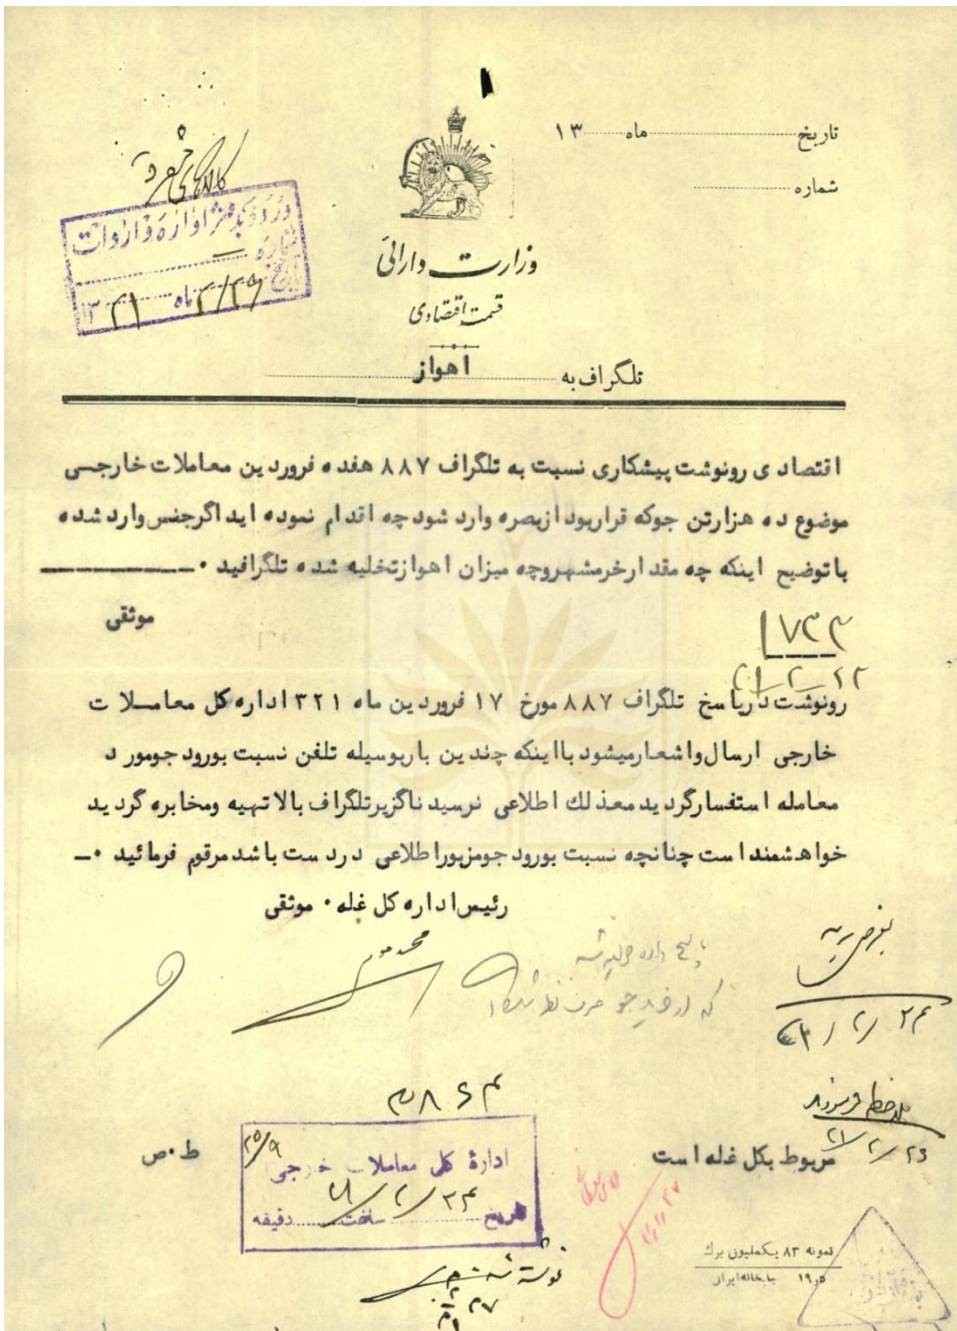 تاریخ ........ ماه ........ ۱۳
شماره ........
وزارت دارائی
قسمت اقتصادی
شماره
تاریخ ۲/۲۹ ماه ۱۳۲۱
تلگراف به ........ اهواز ........
اقتصادی رونوشت پیشکاری نسبت به تلگراف ۸۸۷ هفده فروردین معاملات خارجی
موضوع ده هزارتن جوکه قراربود ازبصره وارد شود چه اقدام نموده اید اگرجنس وارد شده
با توضیح اینکه چه مقدار خرمشهر وچه میزان اهواز تخلیه شده تلگرافید ۰
موثقی
۱۷۳۳
۲۱/۲/۲۲
رونوشت در پاسخ تلگراف ۸۸۷ مورخ ۱۷ فروردین ماه ۳۲۱ اداره کل معاملات
خارجی ارسال واشعار میشود با اینکه چندین بار بوسیله تلفن نسبت بورود جومورد
معامله استفسار گردید معذلك اطلاعی نرسید ناگزیر تلگراف بالا تهیه ومخابره گردید
خواهشمند است چنانچه نسبت بورود جومزبور اطلاعی در دست باشد مرقوم فرمائید ۰ـ
رئیس اداره کل غله ۰ موثقی
پاسخ داده
که از خرید جو صرف نظر
۲۱/۲/۲۳
مربوط بکل غله است
ط ۰ ص
اداره کل معاملات خارجی
تاریخ ۲۱/۲/۲۴ ساعت ...... دقیقه
نوشته شد
نمونه ۸۳ یکملیون برك
۱۹٫۵ چاپخانه ایران